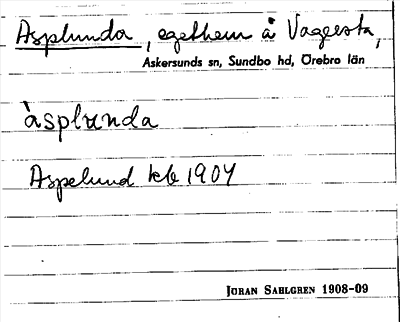 Asplunda, egethem å Vagersta,
Askersunds sn, Sundbo hd, Örebro län
àsplunda
Aspelund kb 1904
Jöran Sahlgren 1908-09